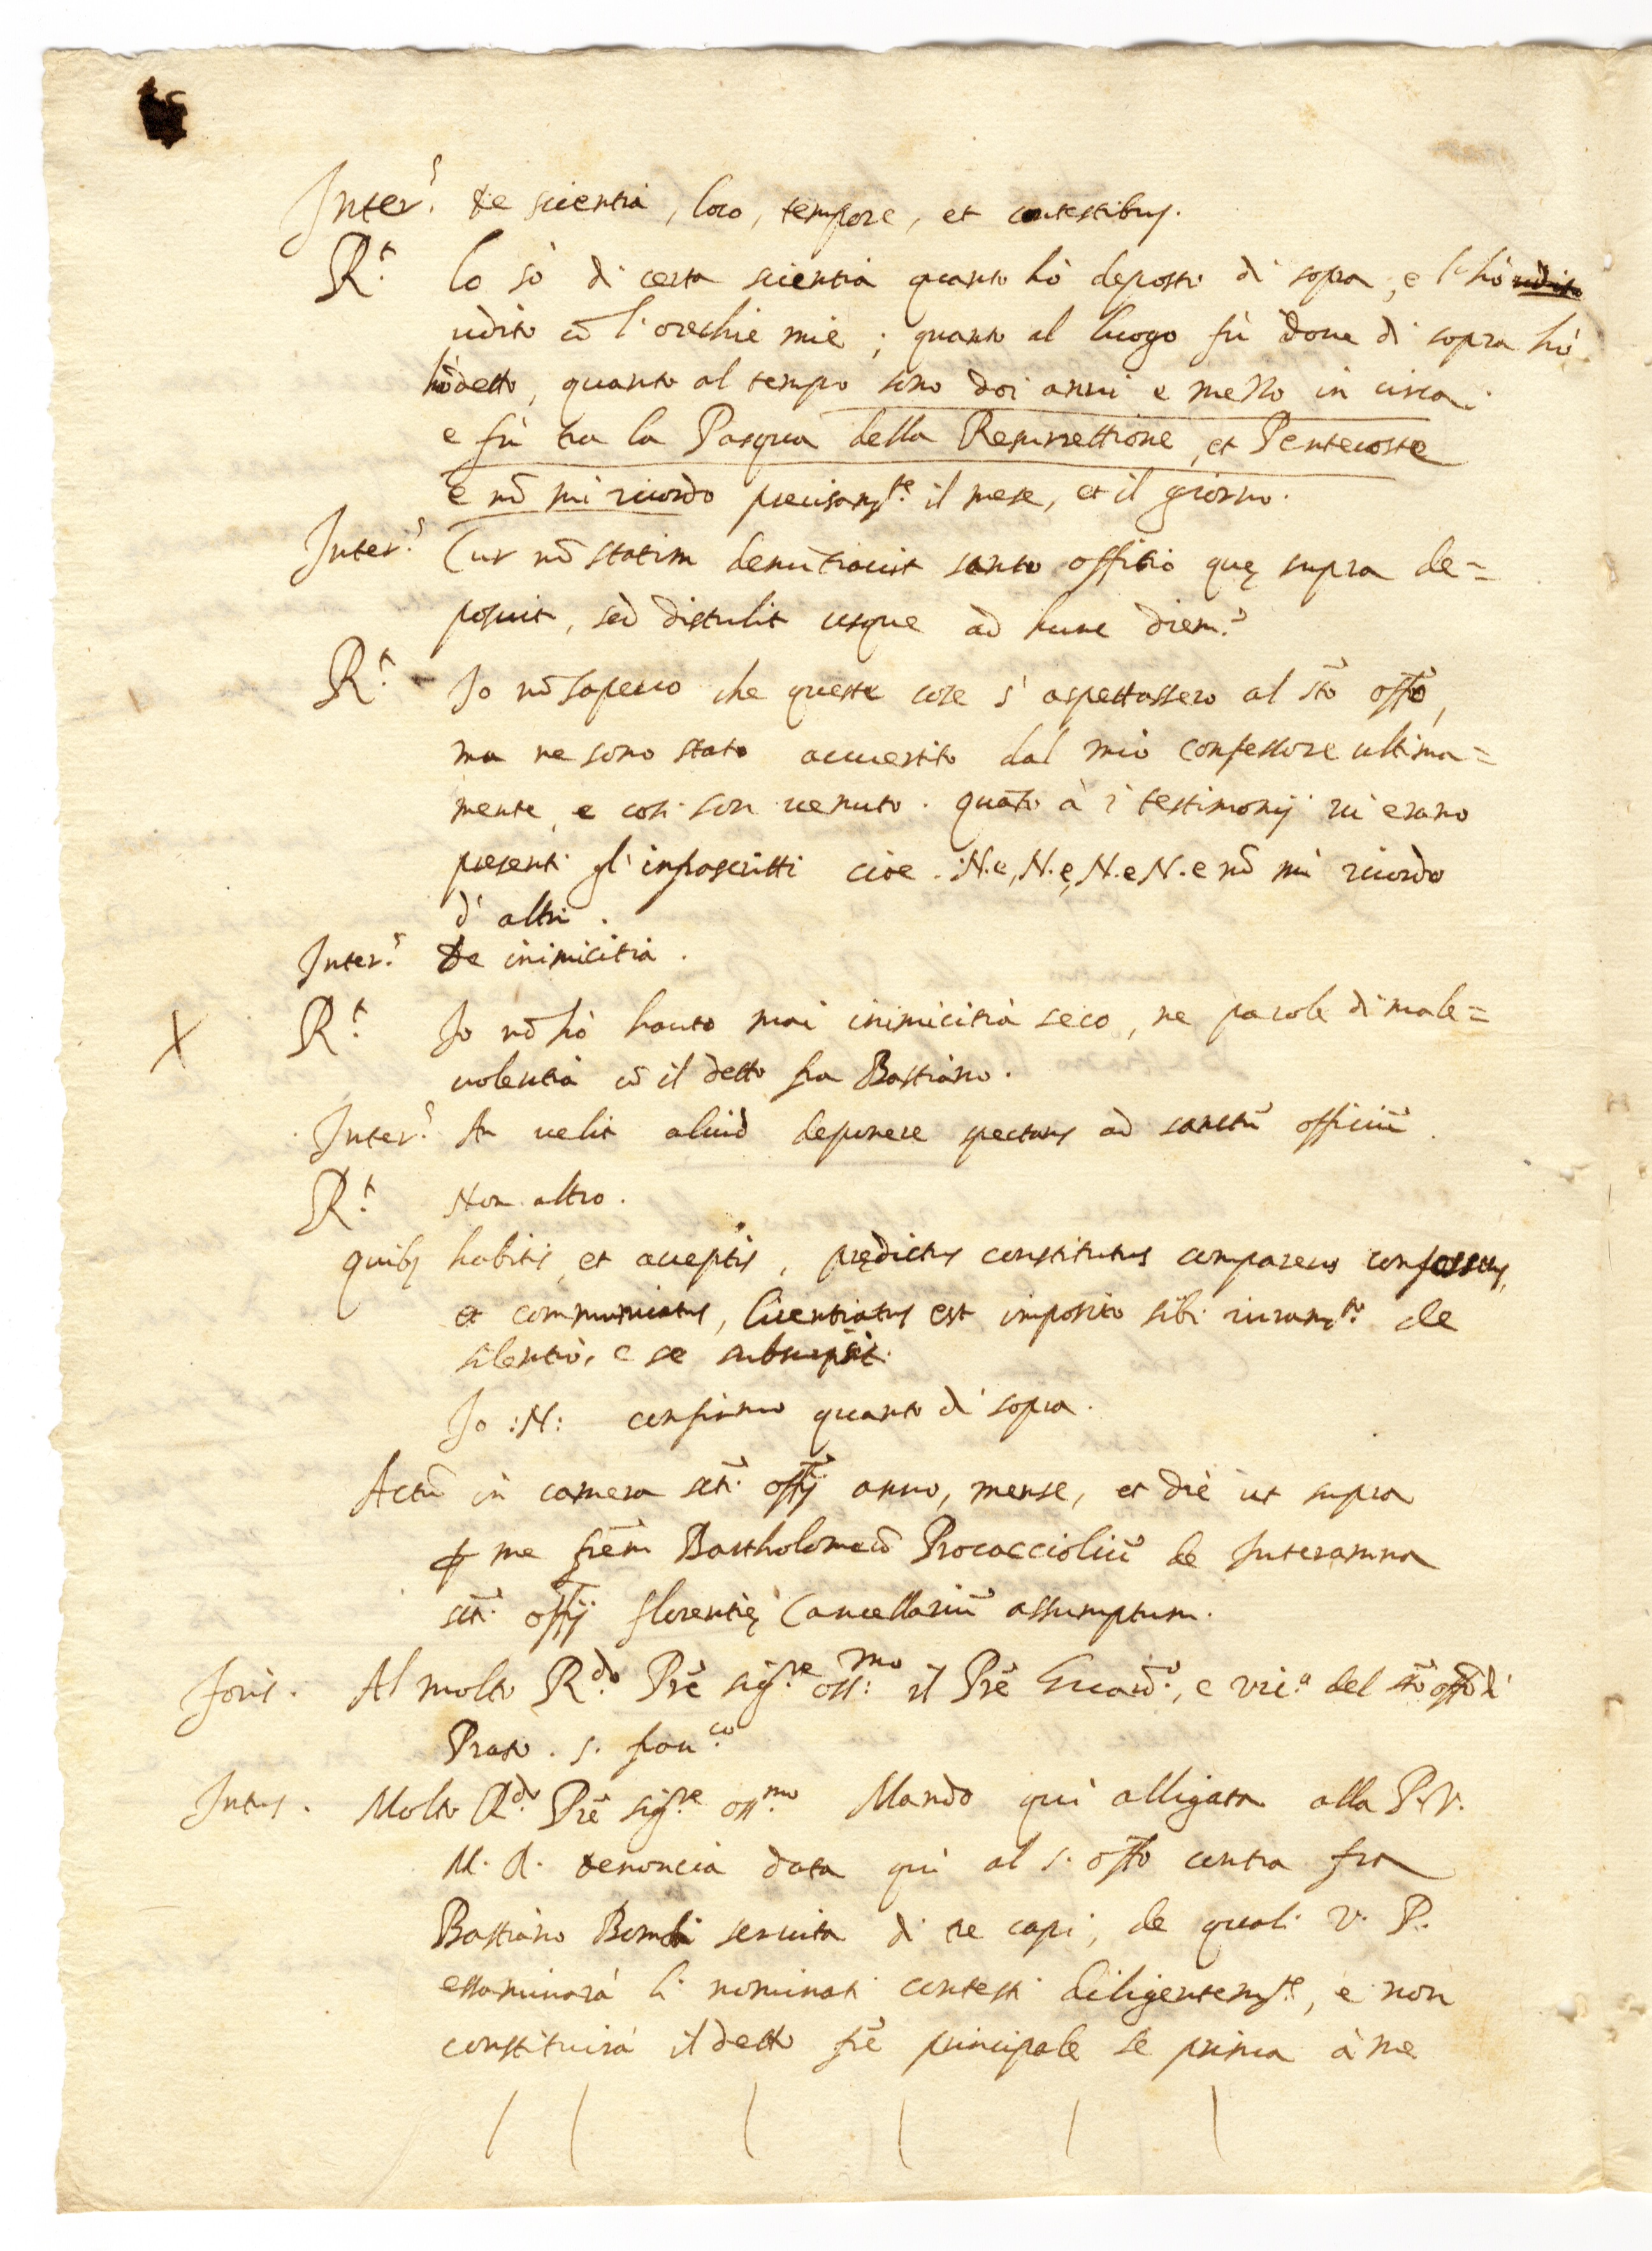 Inter.s de scientia, loco, tempore, et contestibus.
R.t Io sò di certa scientia quanto hò deposto di sopra, e l'hò udito
udito cō l'orechie mie; quanto al luogo fù doue di sopra hò
hò detto, quanto al tempo sono doi anni e mezzo in circa.
e fù tra la Pasqua della Resurrettione, et Pentecoste
e nō mi ricordo precisam.te il mese, et il giorno.
Inter.s Cur nō statim denūtiauit santo offitio quę supra de=
posuit, sed distulit usque ad hunc diem?
R.t Io nō sapeuo che queste cose s'aspettassero al sto offo,
ma ne sono stato auuertito dal mio confessore ultima=
mente, e cosi son uenuto. quāto à i testimonij ui erano
presenti gl'infrascritti cioe .N.e, N.e, N.e N.e nō mi ricordo
d'altri.
Inter.s de inimicitia.
R.t Io nō hò hauto mai inimicitia seco, ne parole di male=
uolentia cō il detto fra Bastiano.
Inter.s An uelit aliud deponere spectans ad sanctū officiū.
R.t Non altro.
quibs habitis, et acceptis, prędictus constitutus comparens confessus,
et communicatus, licentiatus est imposito sibi iuram.to de
silentio, e se subscripsit.
Io :N: confirmo quanto di sopra.
Actū in camera sti. offij anno, mense, et die ut supra
per me frēm Bartholomeū Procacciolū de Interamna
sti. offij florentię Cancellariū assumptum.
foris. Al molto R.do Prē sig.re oss.mo il Prē Guard.o, e vic.o del sto offo di
Prato. s. fran.co
Intus. Molto R.do Prē sig.re oss.mo Mando qui alligata alla P.V.
M. R. denoncia data qui al s. offo contra fra
Bastiano seruita di tre capi, de quali V. P.
essaminarà li nominati contesti diligentem.te, e non
constituirà il detto frē principale se prima à me